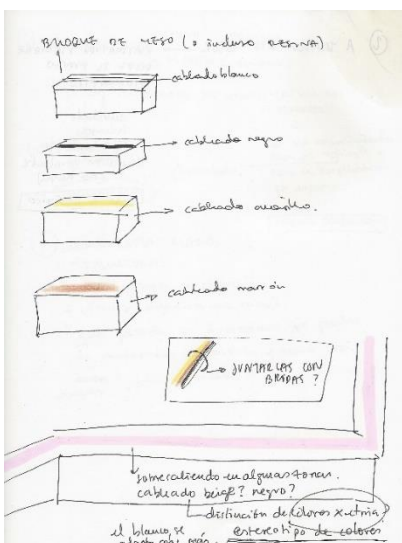 BLOQUE DE YESO (o incluso RESINA)
cableado blanco
cableado negro
cableado amarillo.
cableado marrón
JUNTARLAS CON
BRIDAS?
sobresaliendo en algunas zonas.
cableado beige? negro?
distinción de colores x etnia
el blanco se
estereotipo de colores